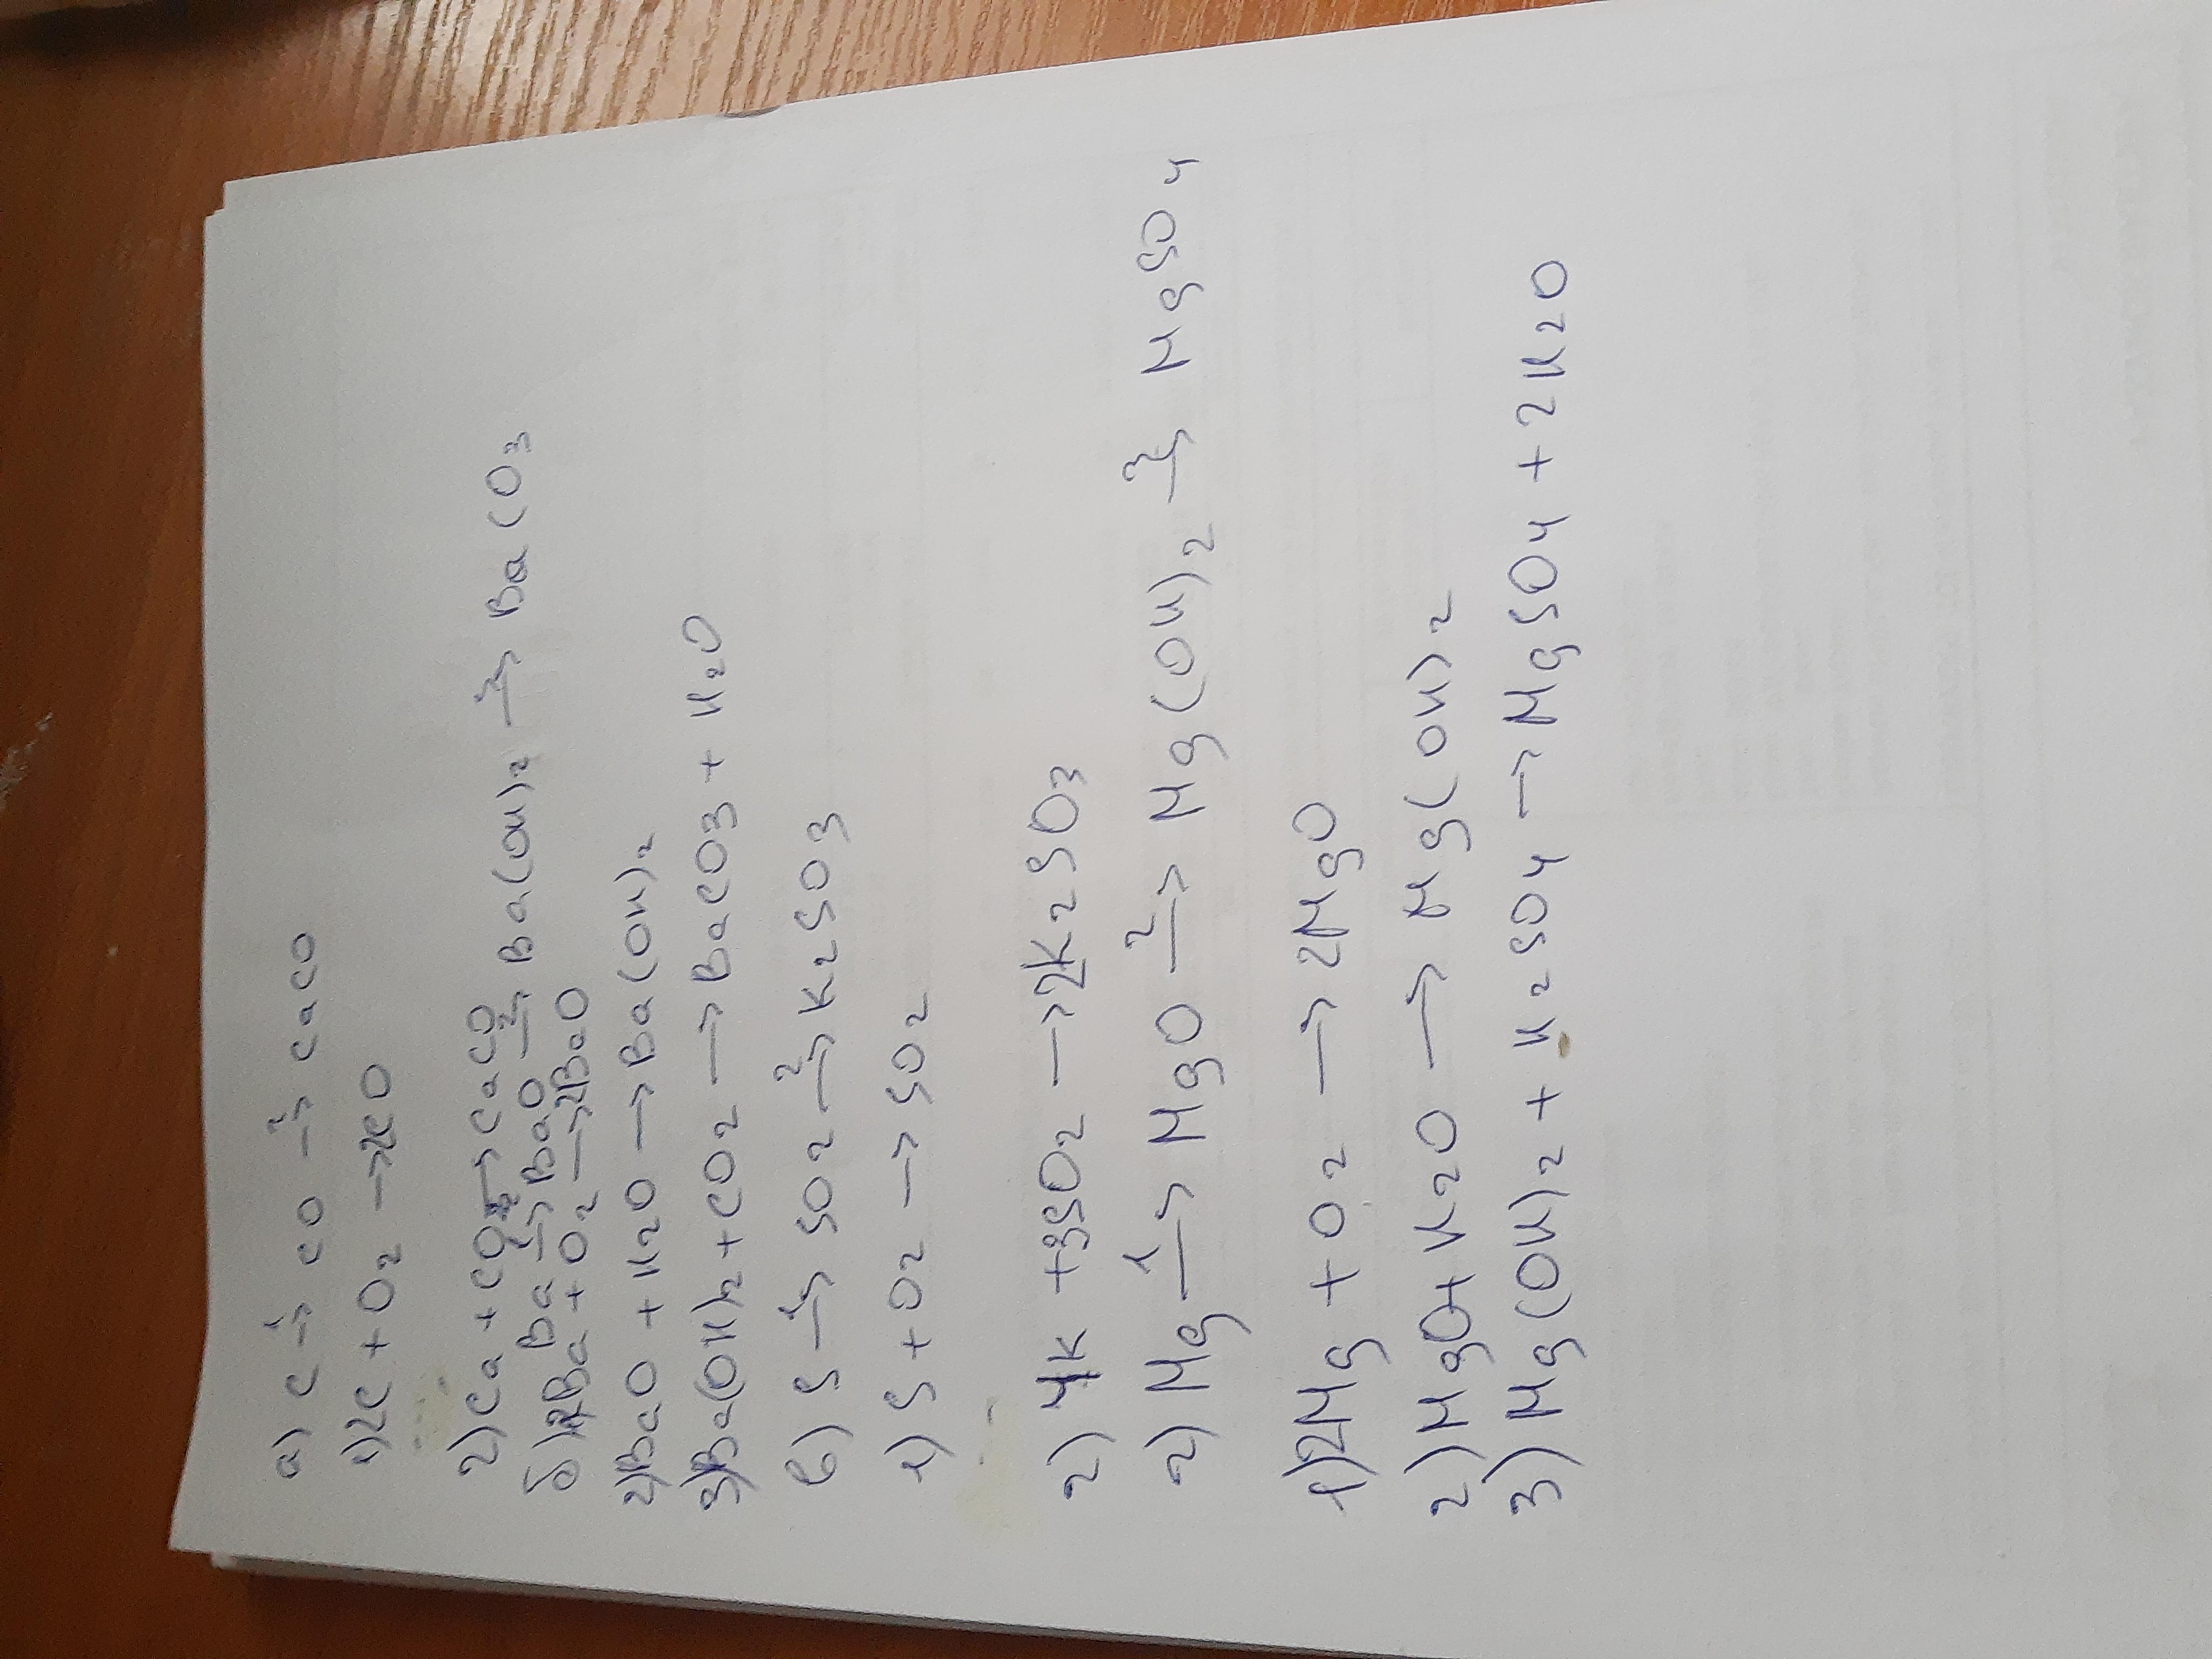 а) C →¹ CO →² CaCO
1) 2C + O2 → 2CO
2) Ca + CO → CaCO
б) Ba →¹ BaO →² Ba(OH)2 →³ BaCO3
2Ba + O2 → 2BaO
2) BaO + H2O → Ba(OH)2
3) Ba(OH)2 + CO2 → BaCO3 + H2O
в) S →¹ SO2 →² K2SO3
1) S + O2 → SO2
2) 4K + 3SO2 → 2K2SO3
г) Mg →¹ MgO →² Mg(OH)2 →³ MgSO4
1) 2Mg + O2 → 2MgO
2) MgO + H2O → Mg(OH)2
3) Mg(OH)2 + H2SO4 → MgSO4 + 2H2O